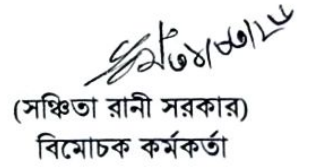 (সঞ্চিতা রানী সরকার)
বিমোচক কর্মকর্তা